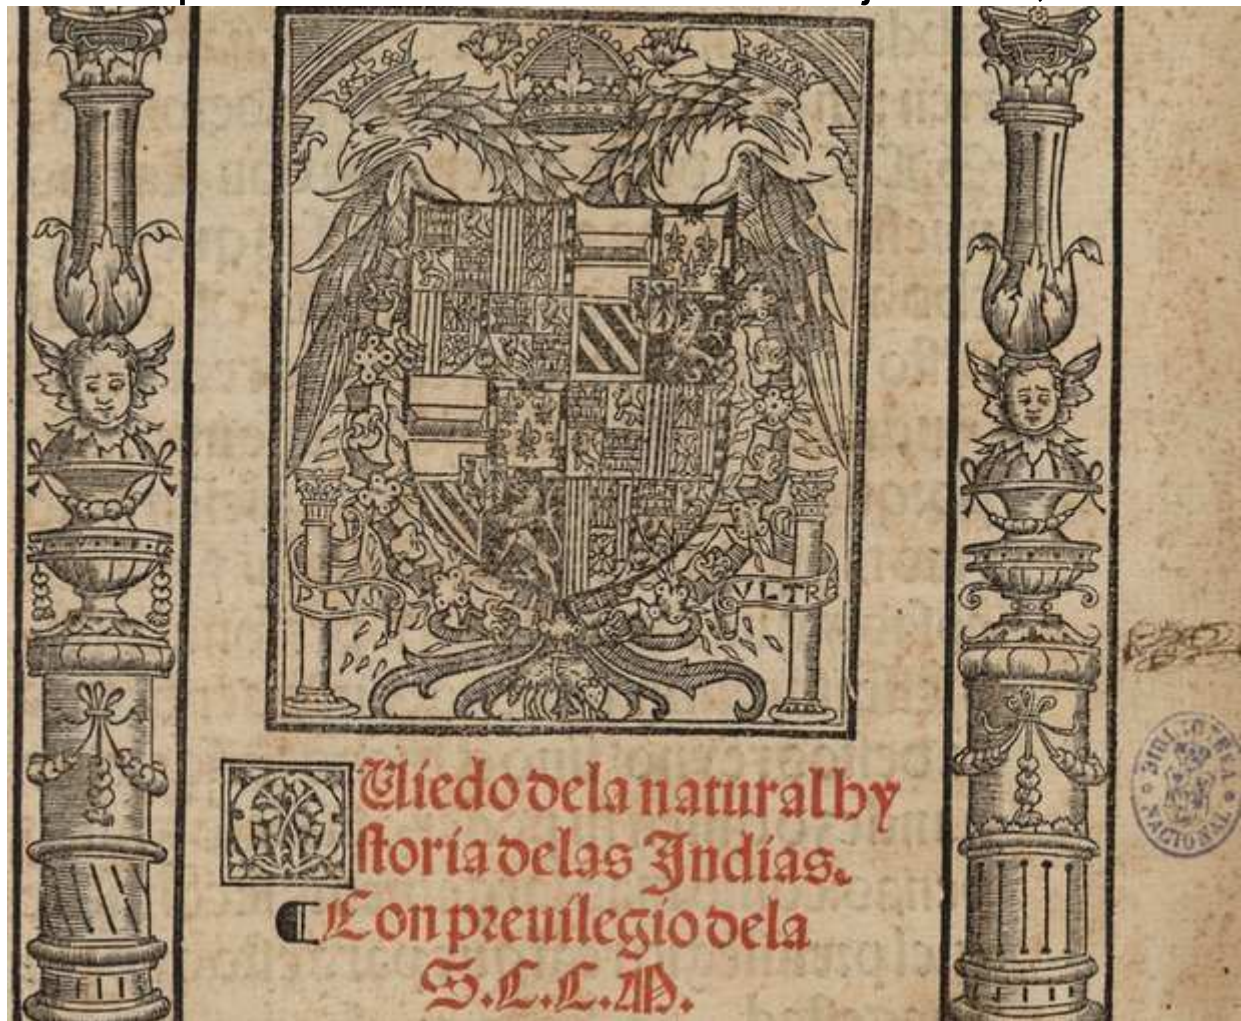 PLVS VLTRE
OUiedo dela natural hy
storia delas Indias.
¶ Con preuilegio dela
S.C.C.M.
BIBLIOTECA NACIONAL